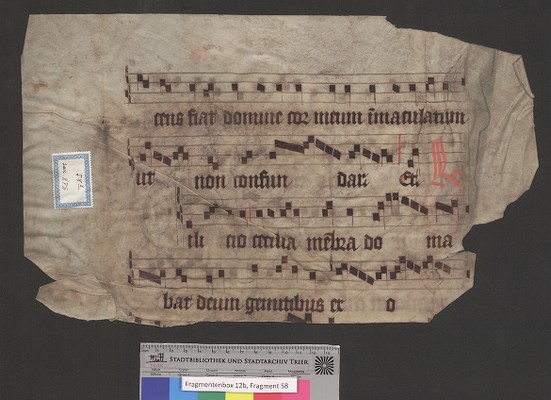 cens fiat domine cor meum īmaculatum
ut non confun dar. Eu
ili cio cecilia mēbra do ma
bat deum gemitibus ex o
STADTBIBLIOTHEK UND STADTARCHIV TRIER
Fragmentenbox 12b, Fragment 58